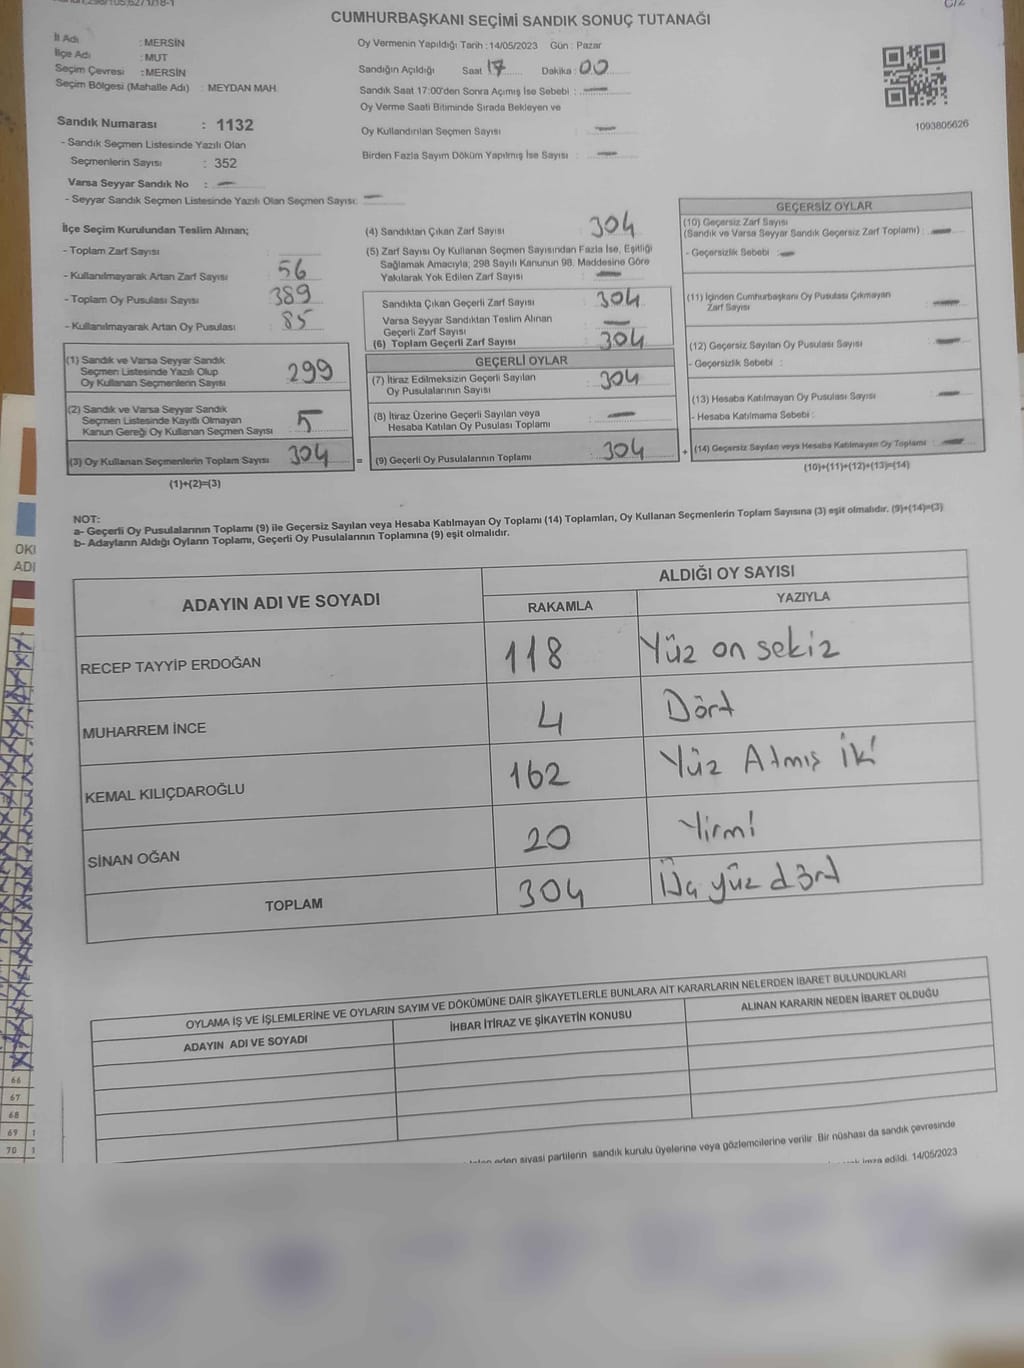 CUMHURBAŞKANI SEÇİMİ SANDIK SONUÇ TUTANAĞI
C/2
İl Adı : MERSİN
İlçe Adı : MUT
Seçim Çevresi : MERSİN
Seçim Bölgesi (Mahalle Adı) : MEYDAN MAH.
Sandık Numarası : 1132
- Sandık Seçmen Listesinde Yazılı Olan
Seçmenlerin Sayısı : 352
Varsa Seyyar Sandık No : —
- Seyyar Sandık Seçmen Listesinde Yazılı Olan Seçmen Sayısı: —
Oy Vermenin Yapıldığı Tarih : 14/05/2023 Gün : Pazar
Sandığın Açıldığı Saat 17 Dakika : 00
Sandık Saat 17:00'den Sonra Açımış İse Sebebi : —
Oy Verme Saati Bitiminde Sırada Bekleyen ve
Oy Kullandırılan Seçmen Sayısı : —
Birden Fazla Sayım Döküm Yapılmış İse Sayısı : —
1093805626
İlçe Seçim Kurulundan Teslim Alınan;
- Toplam Zarf Sayısı :
- Kullanılmayarak Artan Zarf Sayısı : 56
- Toplam Oy Pusulası Sayısı : 389
- Kullanılmayarak Artan Oy Pusulası : 85
(1) Sandık ve Varsa Seyyar Sandık
Seçmen Listesinde Yazılı Olup
Oy Kullanan Seçmenlerin Sayısı : 299
(2) Sandık ve Varsa Seyyar Sandık
Seçmen Listesinde Kayıtlı Olmayan
Kanun Gereği Oy Kullanan Seçmen Sayısı : 5
(3) Oy Kullanan Seçmenlerin Toplam Sayısı : 304
(1)+(2)=(3)
(4) Sandıktan Çıkan Zarf Sayısı : 304
(5) Zarf Sayısı Oy Kullanan Seçmen Sayısından Fazla İse, Eşitliği
Sağlamak Amacıyla; 298 Sayılı Kanunun 98. Maddesine Göre
Yakılarak Yok Edilen Zarf Sayısı : —
Sandıkta Çıkan Geçerli Zarf Sayısı : 304
Varsa Seyyar Sandıktan Teslim Alınan
Geçerli Zarf Sayısı : —
(6) Toplam Geçerli Zarf Sayısı : 304
GEÇERLİ OYLAR
(7) İtiraz Edilmeksizin Geçerli Sayılan
Oy Pusulalarının Sayısı : 304
(8) İtiraz Üzerine Geçerli Sayılan veya
Hesaba Katılan Oy Pusulası Toplamı : —
= (9) Geçerli Oy Pusulalarının Toplamı : 304
GEÇERSİZ OYLAR
(10) Geçersiz Zarf Sayısı
(Sandık ve Varsa Seyyar Sandık Geçersiz Zarf Toplamı) : —
- Geçersizlik Sebebi : —
(11) İçinden Cumhurbaşkanı Oy Pusulası Çıkmayan
Zarf Sayısı : —
(12) Geçersiz Sayılan Oy Pusulası Sayısı : —
- Geçersizlik Sebebi :
(13) Hesaba Katılmayan Oy Pusulası Sayısı : —
- Hesaba Katılmama Sebebi :
+ (14) Geçersiz Sayılan veya Hesaba Katılmayan Oy Toplamı : —
(10)+(11)+(12)+(13)=(14)
NOT:
a- Geçerli Oy Pusulalarının Toplamı (9) ile Geçersiz Sayılan veya Hesaba Katılmayan Oy Toplamı (14) Toplamları, Oy Kullanan Seçmenlerin Toplam Sayısına (3) eşit olmalıdır. (9)+(14)=(3)
b- Adayların Aldığı Oyların Toplamı, Geçerli Oy Pusulalarının Toplamına (9) eşit olmalıdır.
ADAYIN ADI VE SOYADI
ALDIĞI OY SAYISI
RAKAMLA YAZIYLA
RECEP TAYYİP ERDOĞAN 118 Yüz on sekiz
MUHARREM İNCE 4 Dört
KEMAL KILIÇDAROĞLU 162 Yüz Atmış İki
SİNAN OĞAN 20 Yirmi
TOPLAM 304 Üç yüz dört
OYLAMA İŞ VE İŞLEMLERİNE VE OYLARIN SAYIM VE DÖKÜMÜNE DAİR ŞİKAYETLERLE BUNLARA AİT KARARLARIN NELERDEN İBARET BULUNDUKLARI
ADAYIN ADI VE SOYADI İHBAR İTİRAZ VE ŞİKAYETİN KONUSU ALINAN KARARIN NEDEN İBARET OLDUĞU
eden siyasi partilerin sandık kurulu üyelerine veya gözlemcilerine verilir. Bir nüshası da sandık çevresinde
imza edildi. 14/05/2023
OK
ADI
66
67
68
69
70